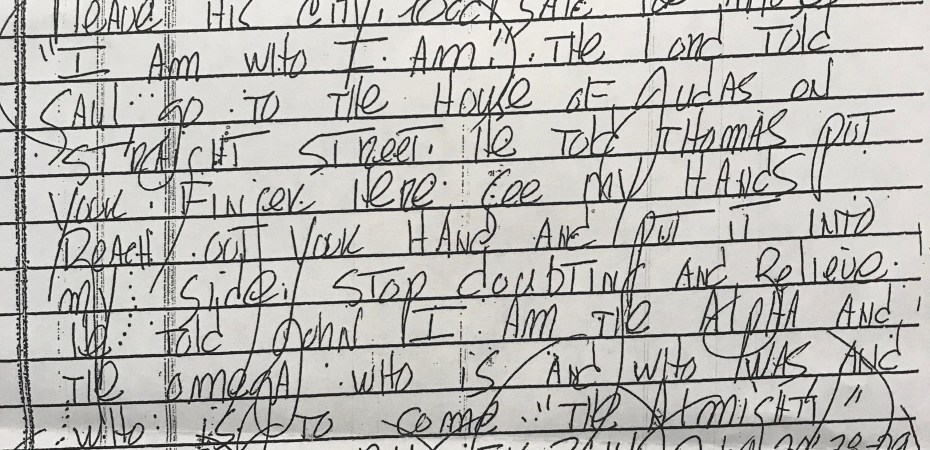 leave His City,
"I Am Who I Am". The Lord Told
Saul go To The House of Judas on
Straight Street. He Told Thomas put
Your Finger Here. See my Hands
Reach out Your Hand And put it into
my side. Stop doubting and Believe.
He told John I Am The Alpha And
The omega who is And who was And
who is To come "The Almighty"